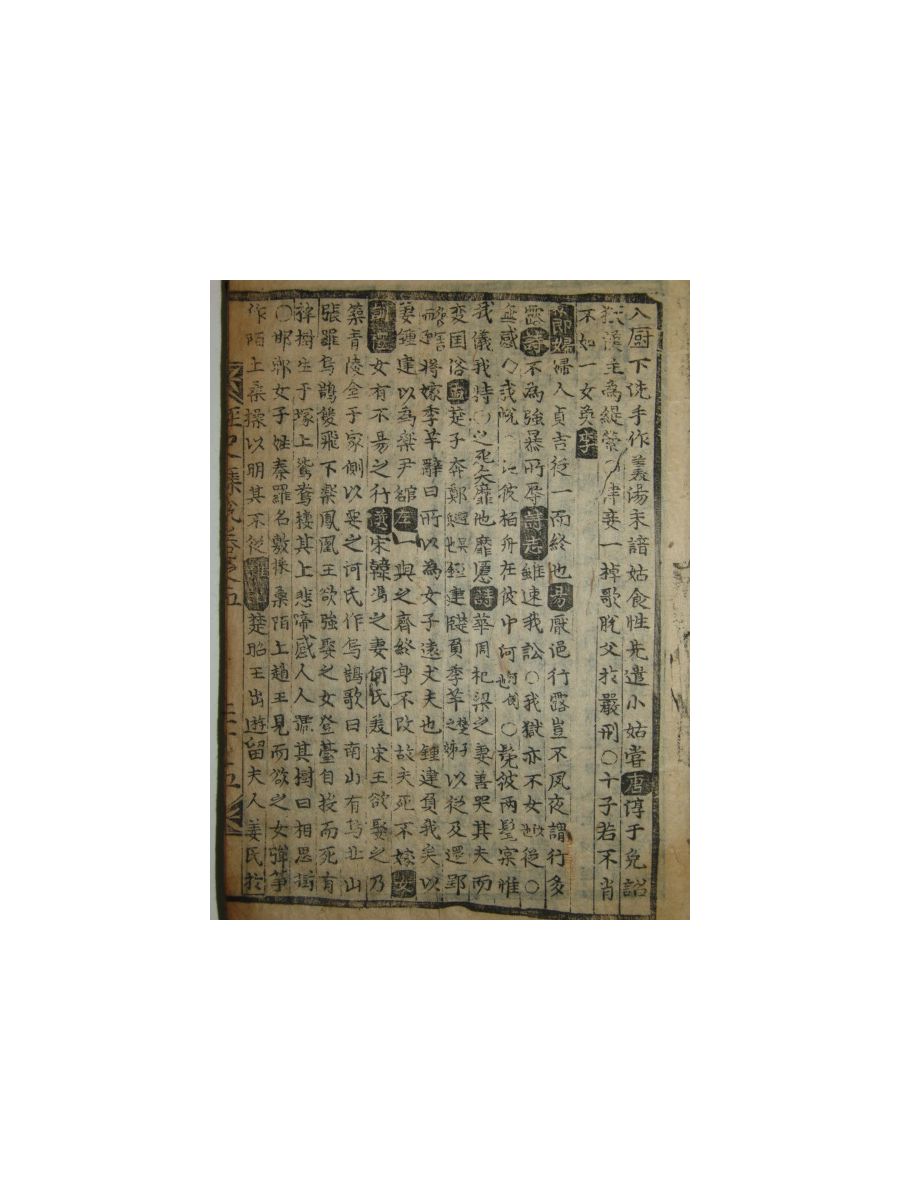 入厨下洗手作羹湯未諳姑食性先遣小姑嘗唐淳于免詔
獄漢主為緹縈○津妾一掉歌脫父於嚴刑○十子若不肖
不如一女英李
節婦婦人貞吉從一而終也易厭浥行露豈不夙夜謂行多
露詩不為強暴所辱詩志雖速我訟○我獄亦不女從○
無感我帨○彼柏舟在彼中河○髧彼兩髦實惟
我儀我特○之死矢靡他靡慝詩華周杞梁之妻善哭其夫而
變国俗孟楚子奔鄭鍾建負季羋楚子之妹以從及還郢
將嫁季羋辭曰所以為女子遠丈夫也鍾建負我矣以
妻鍾建以為樂尹左一與之齊終身不改故夫死不嫁
女有不易之行漢宋韓馮之妻何氏美宋王欲娶之乃
築青陵臺于家側以望之何氏作烏鵲歌曰南山有烏北山
張羅烏鵲雙飛下樂鳳凰王欲強娶之女登臺自投而死有
梓樹生于塚上鴛鴦棲其上悲啼感人人謂其樹曰相思樹
○邯鄲女子姓秦羅名敷採桑陌上趙王見而欲之女彈箏
作陌上桑操以明其不從楚昭王出遊留夫人姜氏於